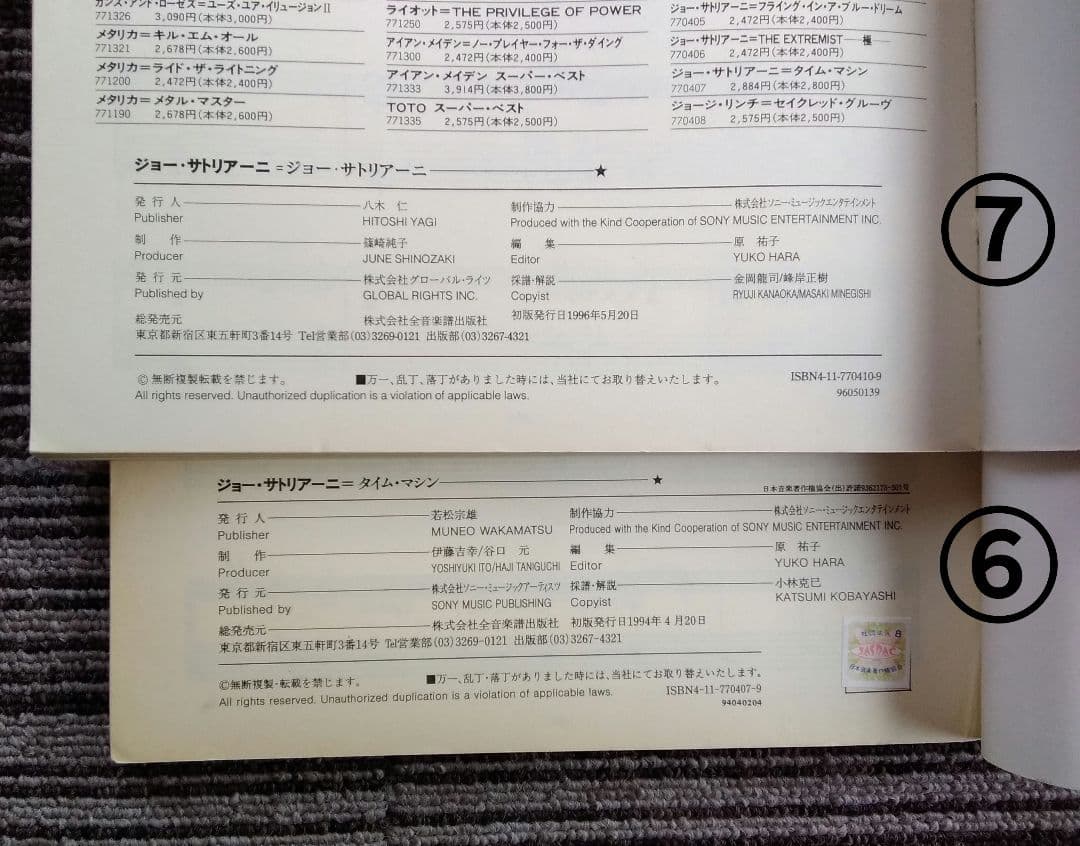 ガンズ・アンド・ローゼズ=ユーズ・ユア・イリュージョンⅡ
771326 3,090円(本体3,000円)
メタリカ=キル・エム・オール
771321 2,678円(本体2,600円)
メタリカ=ライド・ザ・ライトニング
771200 2,472円(本体2,400円)
メタリカ=メタル・マスター
771190 2,678円(本体2,600円)
ライオット=THE PRIVILEGE OF POWER
771250 2,575円(本体2,500円)
アイアン・メイデン=ノー・プレイヤー・フォー・ザ・ダイング
771300 2,472円(本体2,400円)
アイアン・メイデン スーパー・ベスト
771333 3,914円(本体3,800円)
TOTO スーパー・ベスト
771335 2,575円(本体2,500円)
ジョー・サトリアーニ=フライング・イン・ア・ブルー・ドリーム
770405 2,472円(本体2,400円)
ジョー・サトリアーニ=THE EXTREMIST—極—
770406 2,472円(本体2,400円)
ジョー・サトリアーニ=タイム・マシン
770407 2,884円(本体2,800円)
ジョージ・リンチ=セイクレッド・グルーヴ
770408 2,575円(本体2,500円)
ジョー・サトリアーニ=ジョー・サトリアーニ ★
発行人 八木 仁
Publisher HITOSHI YAGI
制作 篠崎純子
Producer JUNE SHINOZAKI
発行元 株式会社グローバル・ライツ
Published by GLOBAL RIGHTS INC.
総発売元 株式会社全音楽譜出版社
東京都新宿区東五軒町3番14号 Tel営業部(03)3269-0121 出版部(03)3267-4321
制作協力 株式会社ソニー・ミュージックエンタテインメント
Produced with the Kind Cooperation of SONY MUSIC ENTERTAINMENT INC.
編集 原 祐子
Editor YUKO HARA
採譜・解説 金岡龍司/峰岸正樹
Copyist RYUJI KANAOKA/MASAKI MINEGISHI
初版発行日1996年5月20日
©無断複製転載を禁じます。 ■万一、乱丁、落丁がありました時には、当社にてお取り替えいたします。 ISBN4-11-770410-9
All rights reserved. Unauthorized duplication is a violation of applicable laws. 96050139
⑦
ジョー・サトリアーニ=タイム・マシン ★
日本音楽著作権協会(出)許諾9362173-301号
発行人 若松宗雄
Publisher MUNEO WAKAMATSU
制作 伊藤吉幸/谷口 元
Producer YOSHIYUKI ITO/HAJI TANIGUCHI
発行元 株式会社ソニー・ミュージックアーティスツ
Published by SONY MUSIC PUBLISHING
総発売元 株式会社全音楽譜出版社 初版発行日1994年4月20日
東京都新宿区東五軒町3番14号 Tel営業部(03)3269-0121 出版部(03)3267-4321
制作協力 株式会社ソニー・ミュージックエンタテインメント
Produced with the Kind Cooperation of SONY MUSIC ENTERTAINMENT INC.
編集 原 祐子
Editor YUKO HARA
採譜・解説 小林克巳
Copyist KATSUMI KOBAYASHI
©無断複製・転載を禁じます。 ■万一、乱丁・落丁がありました時には、当社にてお取り替えいたします。
All rights reserved. Unauthorized duplication is a violation of applicable laws. ISBN4-11-770407-9
94040204
JASRAC
⑥